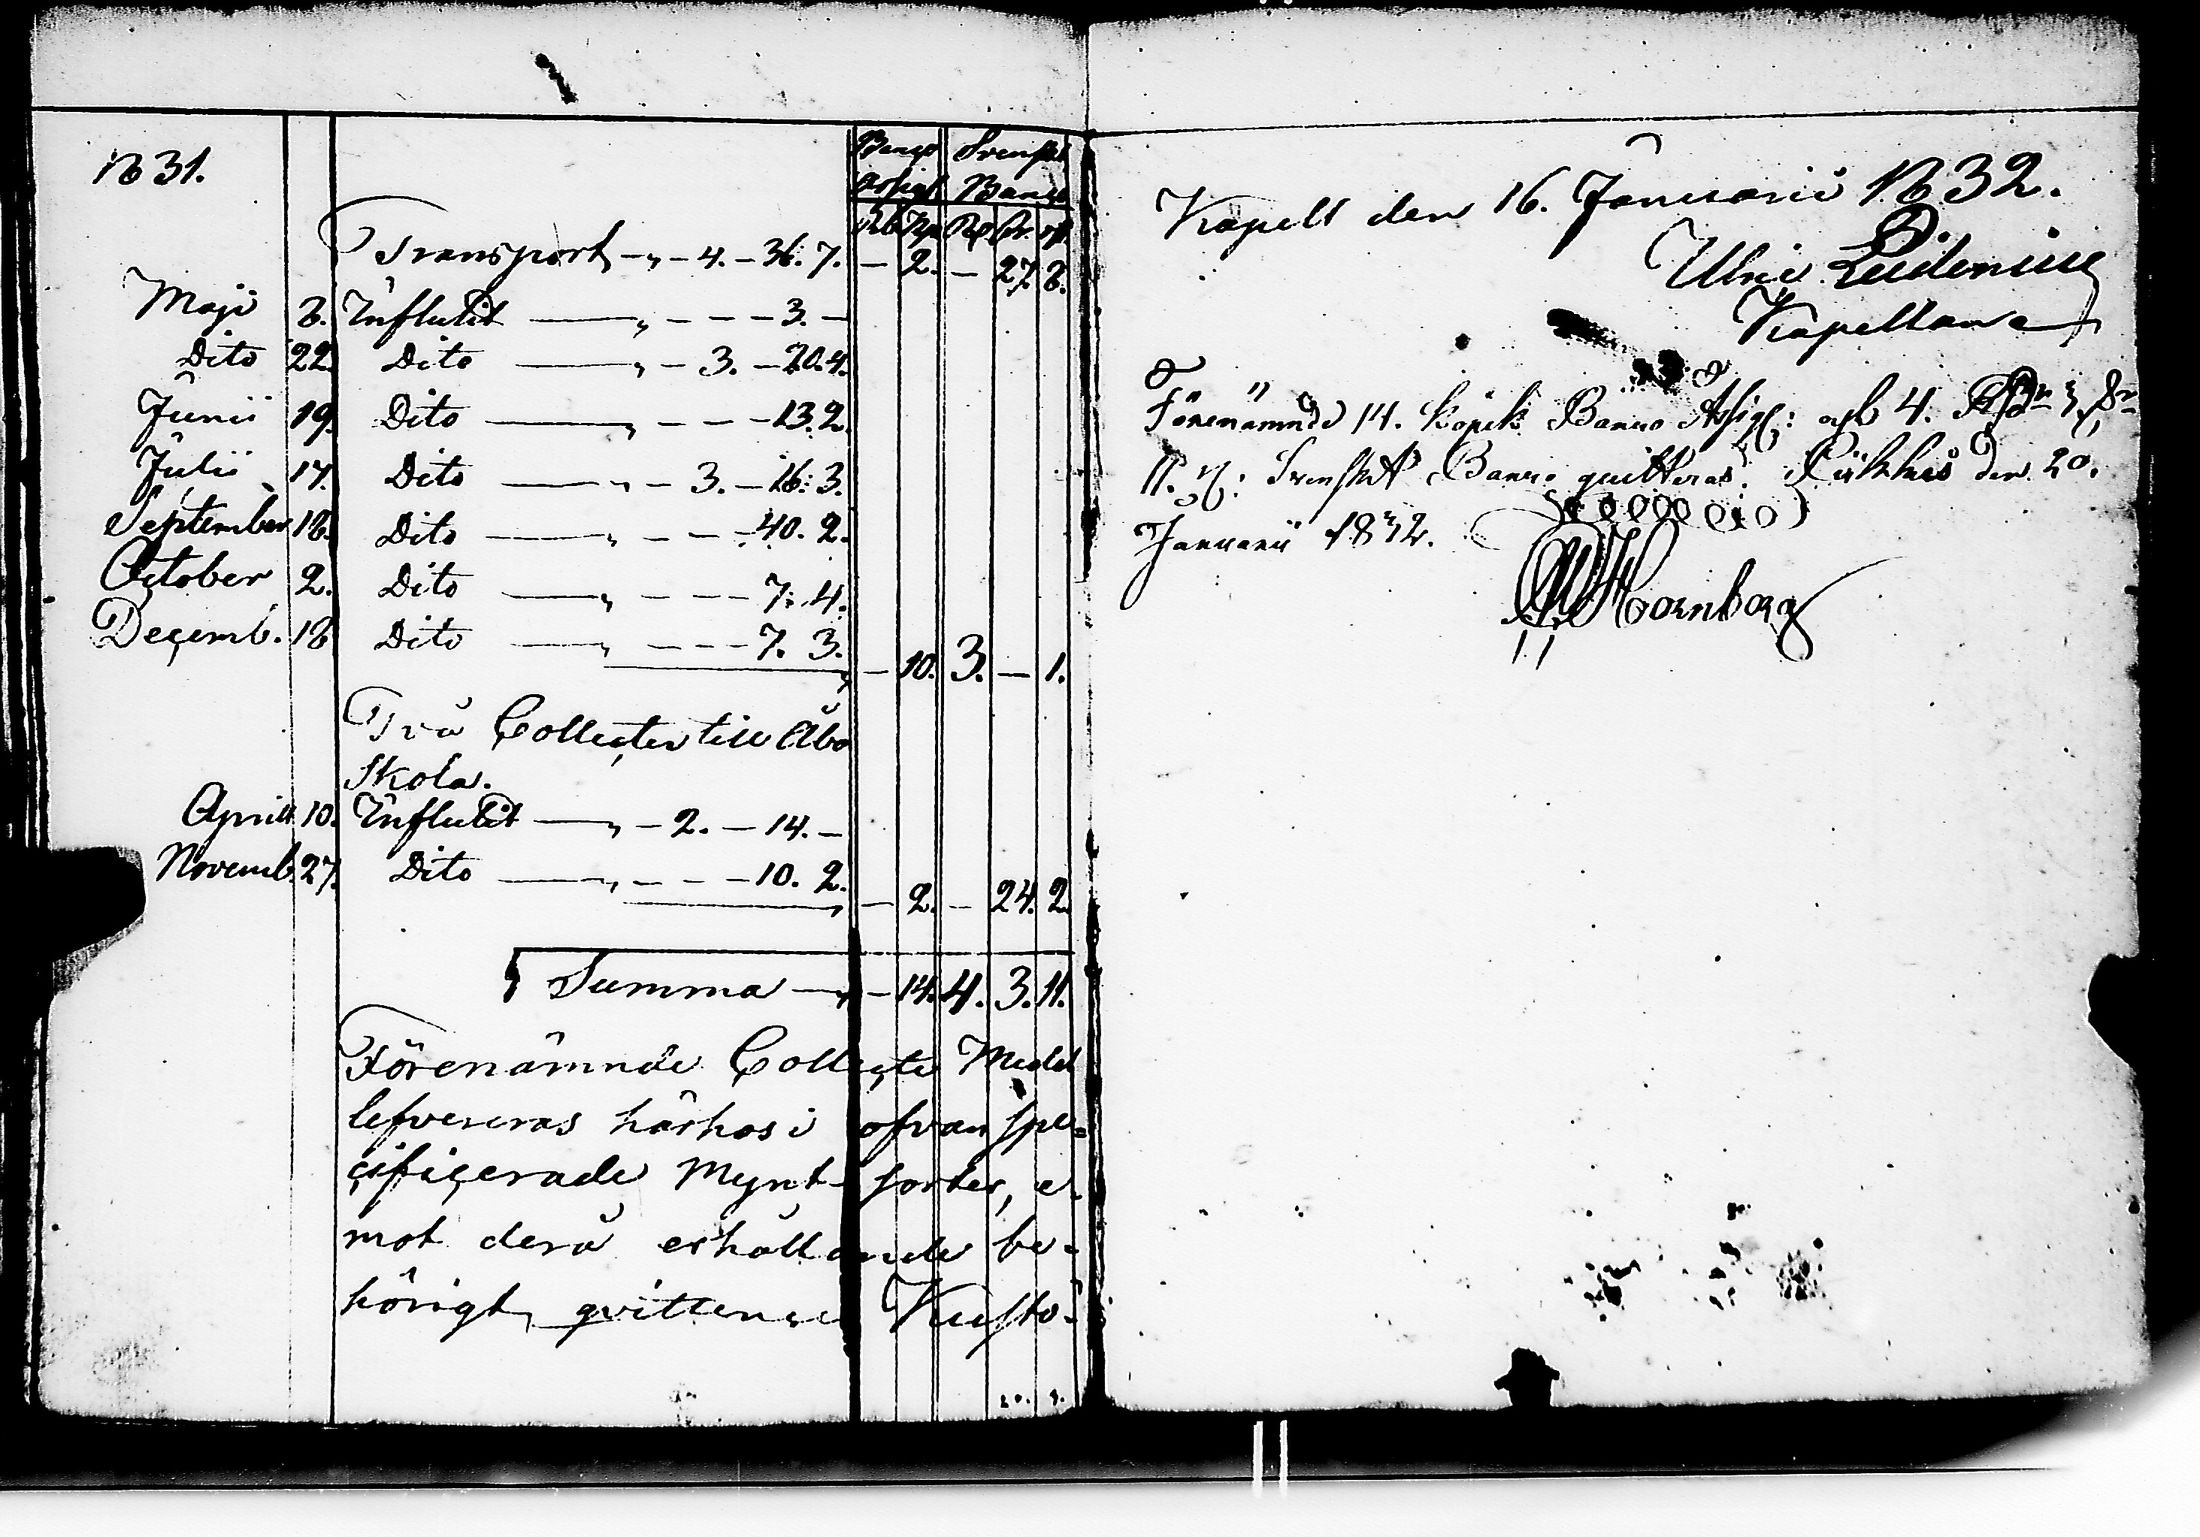 1831.
Banco Svenskt
Assigt Banco
Rb Kp Rd Sk. rst
Transport „ — 4. — 36. 7. — 2. — 27. 8.
Maji 8. Influtit — „ — — — 3. —
Dito 22. Dito — „ — 3. — 20. 4.
Junii 19. Dito — „ — — — 13. 2.
Julii 17. Dito — „ — 3. — 16. 3.
September 18. Dito — „ — — — 40. 2.
October 2. Dito — „ — — — 7. 4.
Decemb. 18 Dito — „ — — — 7. 3.
— 10. 3. — 1.
Två Collecter till Åbo
Skola.
Aprill 10. Influtit — „ — 2. — 14. —
Novemb. 27. Dito — „ — — — 10. 2.
— 2. — 24. 2.
Summa — „ — 14. 4. 3. 11.
Förenämnde Collecte Medel
lefvereras härhos i ofvan spe=
cificerade Mynt-sorter, e-
mot derå erhållande be-
hörigt qvittence Kusto-
Kapell den 16. Januarii 1832.
Ulric
Kapellan
Förenämnde 14. Kopek Banco Assig: och 4. Rdr 3 sk
11. rst: Svenskt Banco quitteras. den 20.
Januarii 1832.
Hornborg